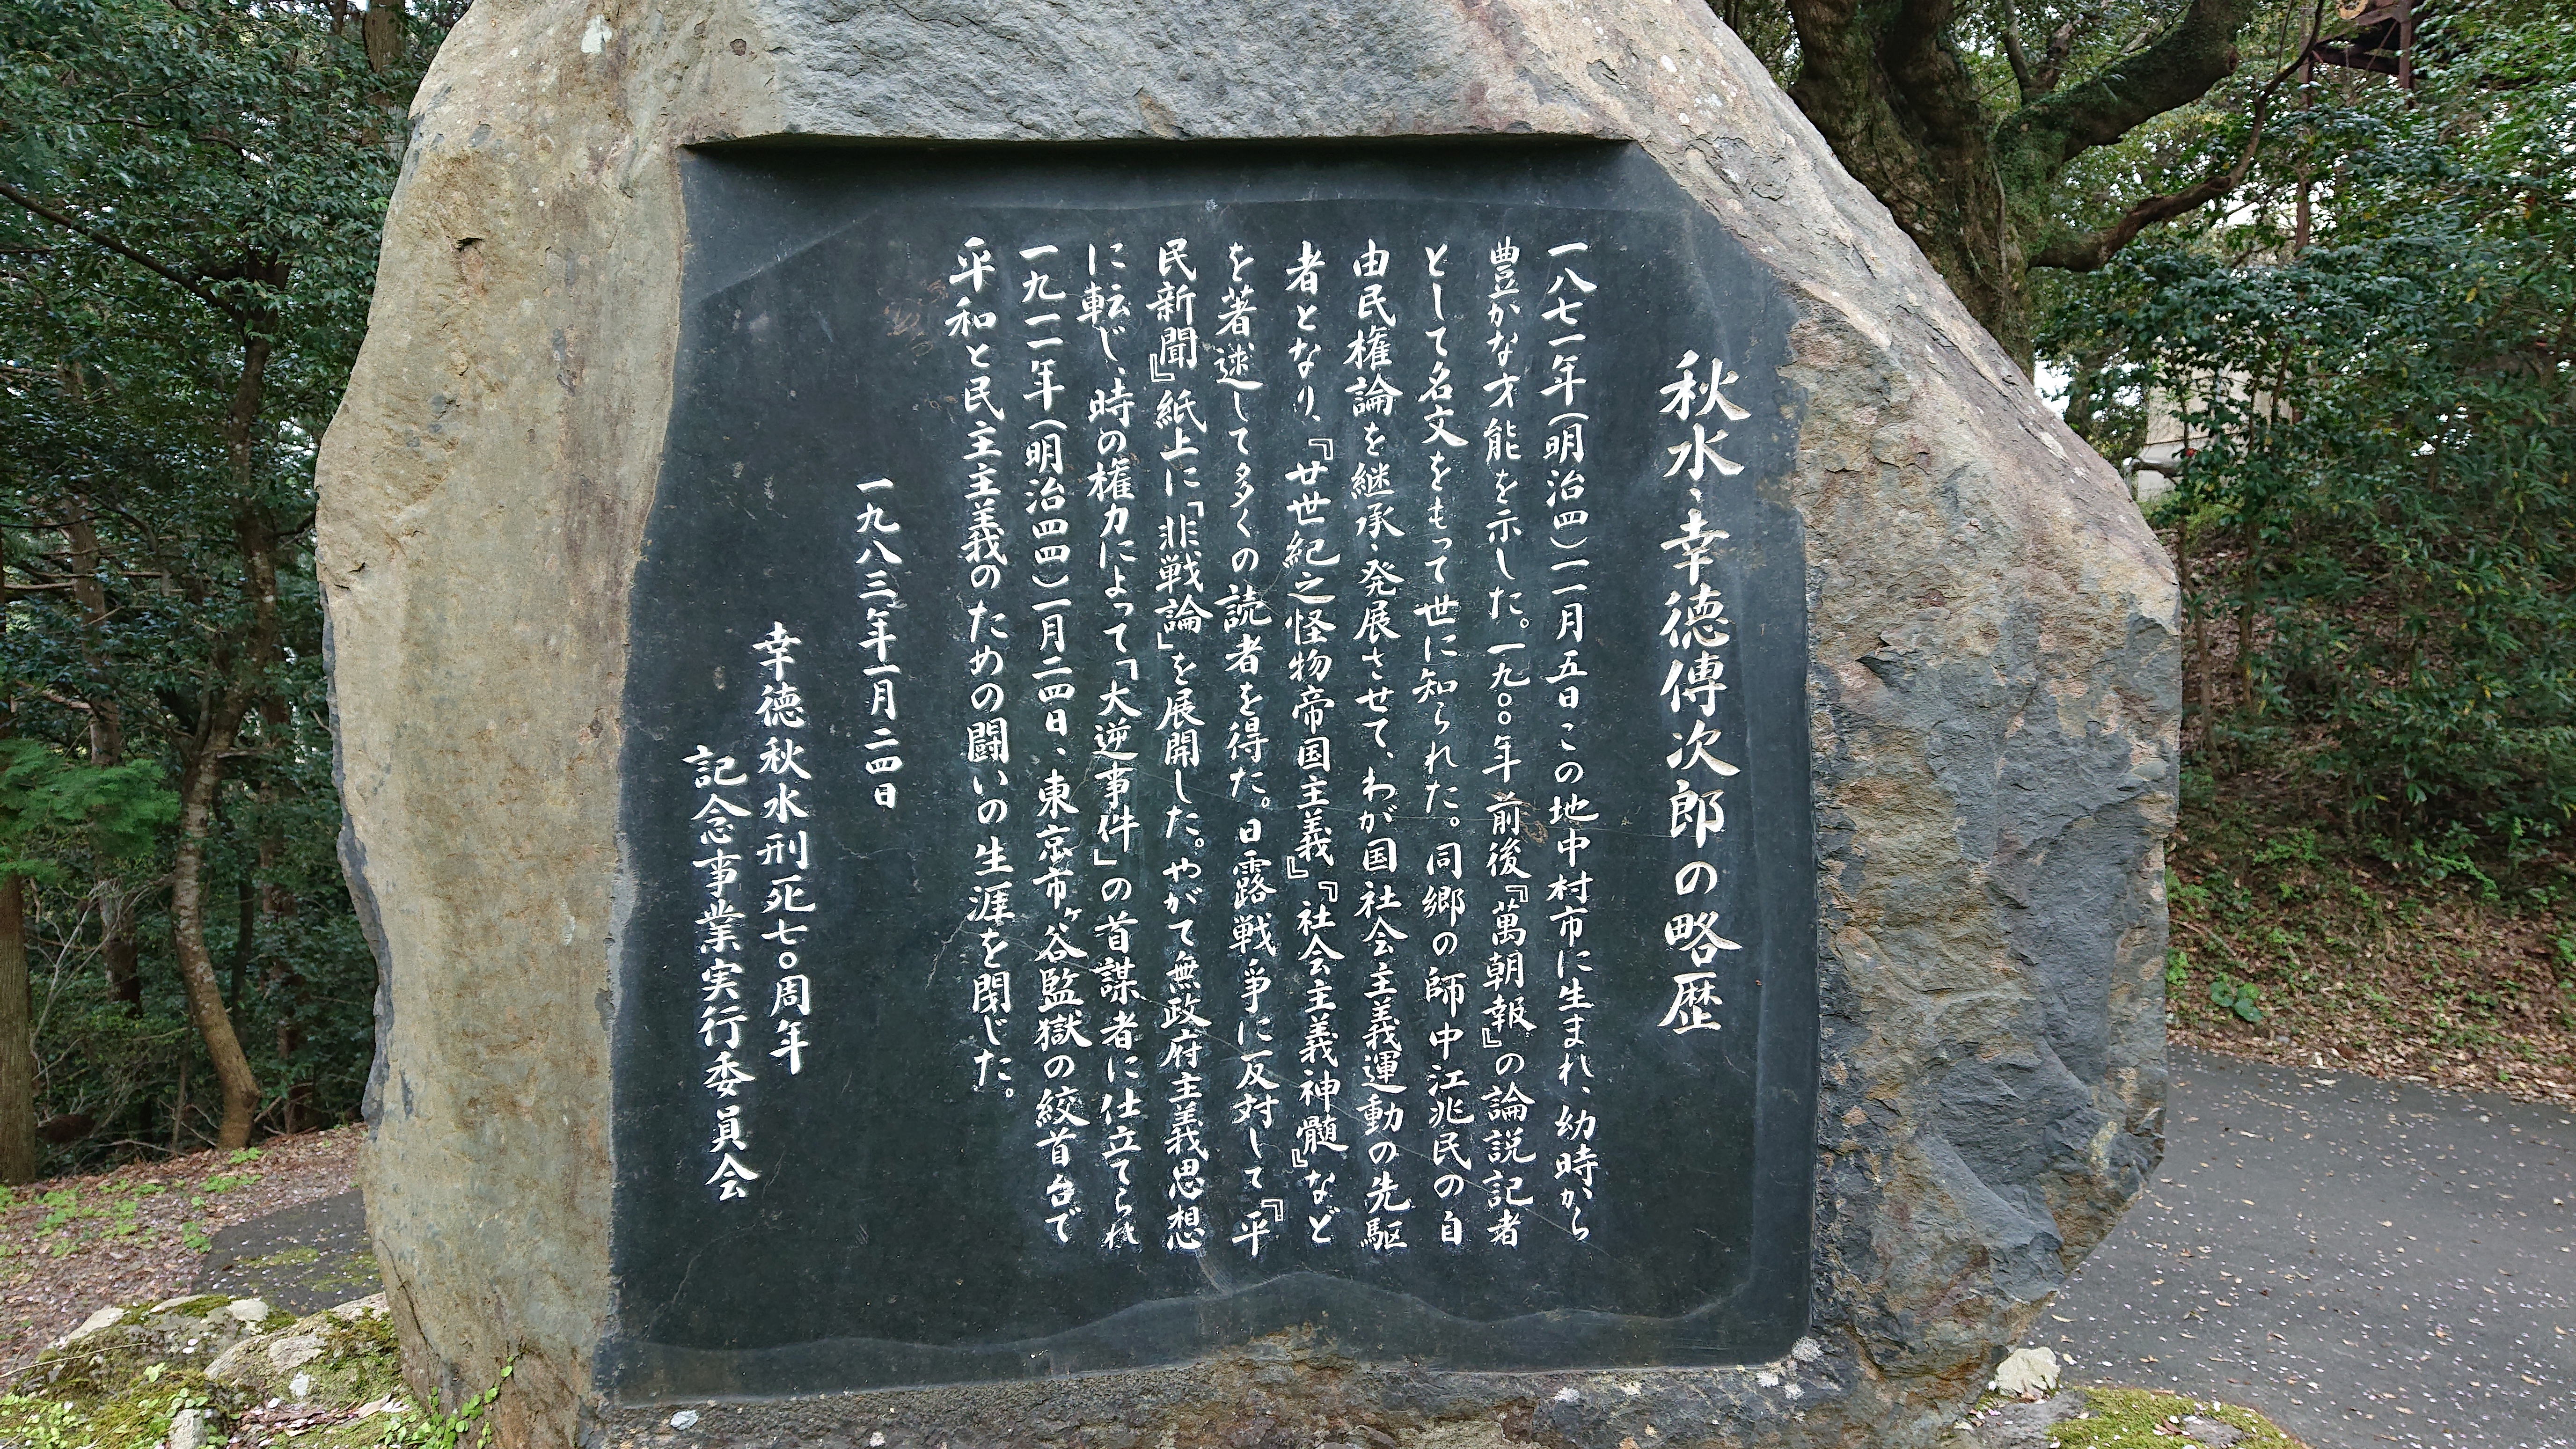 秋水・幸徳傳次郎の略歴
一八七一年(明治四)一一月五日この地中村市に生まれ、幼時から
豊かな才能を示した。一九〇〇年前後『萬朝報』の論説記者
として名文をもって世に知られた。同郷の師中江兆民の自
由民権論を継承・発展させて、わが国社会主義運動の先駆
者となり、『廿世紀之怪物帝国主義』『社会主義神髄』など
を著述して多くの読者を得た。日露戦争に反対して『平
民新聞』紙上に「非戦論」を展開した。やがて無政府主義思想
に転じ、時の権力によって「大逆事件」の首謀者に仕立てられ
一九一一年(明治四四)一月二四日、東京市ヶ谷監獄の絞首台で
平和と民主主義のための闘いの生涯を閉じた。
一九八三年一月二四日
幸徳秋水刑死七〇周年
記念事業実行委員会